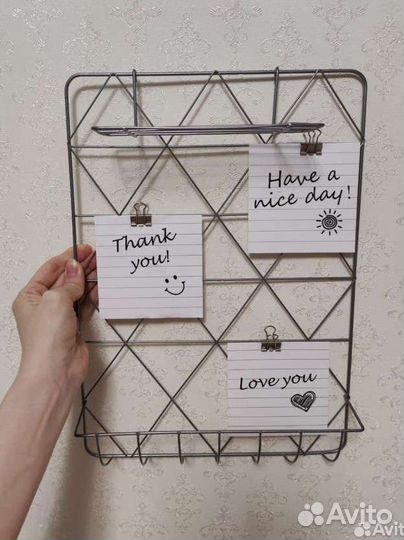 Have a
nice day!
Thank
you!
Love you
Avito
Avito